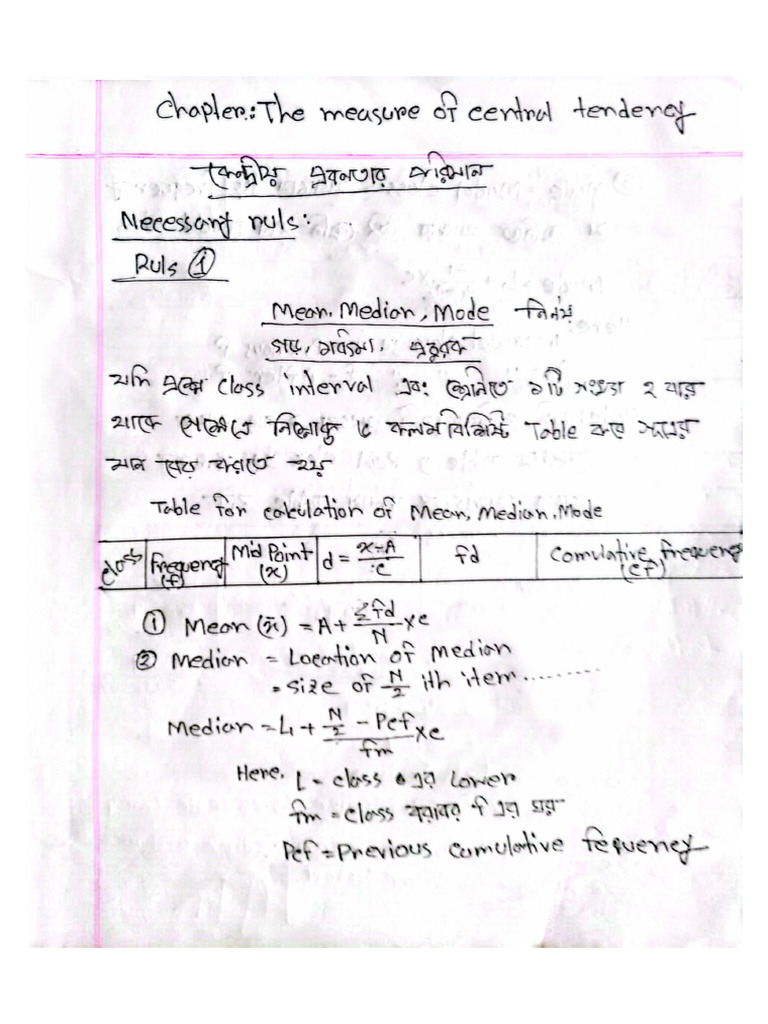 Chapter: The measure of central tendency
কেন্দ্রীয় প্রবনতার পরিমান
Necessary ruls:
Ruls ①
Mean, Median, Mode নির্নয়
গড়, মধ্যমা, প্রচুরক
যদি প্রশ্নে class interval এবং শ্রেনিতে ১টি সংখ্যা ২ বার
থাকে সেক্ষেত্রে নিম্নোক্ত ৬ কলামবিশিষ্ট Table করে সূত্রের
মান বের করতে হয়
Table for calculation of Mean, Median, Mode
class Frequency (f) Mid Point (x) d = x-A/c fd Comulative frequency (cf)
① Mean (x̄) = A + Σfd/N × c
② Median = Location of median
= size of N/2 ith item..........
Median = L + N/2 - Pcf/fm × c
Here, L - class এর Lower
fm = class বরাবর f এর ঘর
Pcf = Previous cumulative fequency